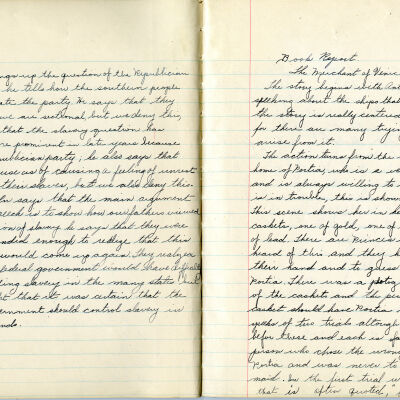 ngs up the question of the Republican
he tells how the southern people
ate the party. He says that they
we are sectional, but we deny this,
that the slavery question has
re prominent in late years because
publican party; he also says that
use us of causing a feeling of unrest
their slaves, but we also deny this.
ln says that the main argument
speech is to show how our fathers viewed
on of slavery he says that they were
minded enough to realize that this
would come up again. They realize
federal government would have
ling slavery in the many states but
t that it was certain that the
ernment should control slavery in
Book Report
The Merchant of Venice
The story begins with Ant
speaking about the ships that
the story is really centered
for there are many tryin
arise from it.
The action turns from the
home of Portia, who is a wo
and is always willing to
is in trouble, this is shown
This scene shows her in he
caskets, one of gold, one of
of lead. There are Princes
heard of this and they h
their hand and to guess
Portia. There was a
of the caskets and the pic
casket should have Portia
speaks of two trials althoug
before these and each is fa
person who chose the wron
Portia and was never to
maid. In the first trial w
that is often quoted,